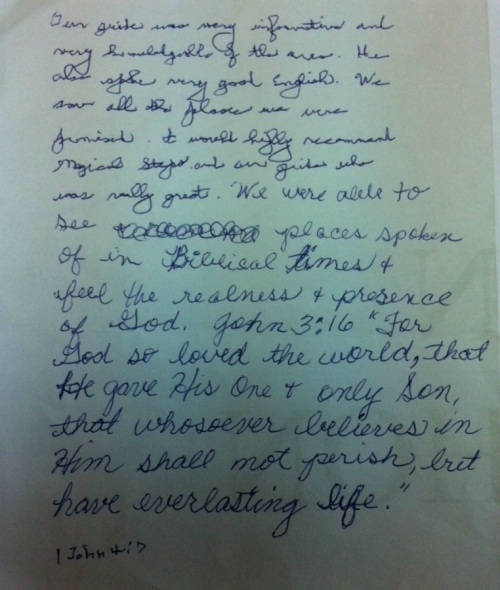 Our guide was very informative and
very knowledgable of the area. He
also spoke very good English. We
saw all the places we were
promised. I would highly recommend
Magical and our guide who
was really great. We were able to
see places spoken
of in Biblical times &
feel the realness & presence
of God. John 3:16 "For
God so loved the world, that
He gave His One & only Son,
that whosoever believes in
Him shall not perish, but
have everlasting life."
1 John 4:7